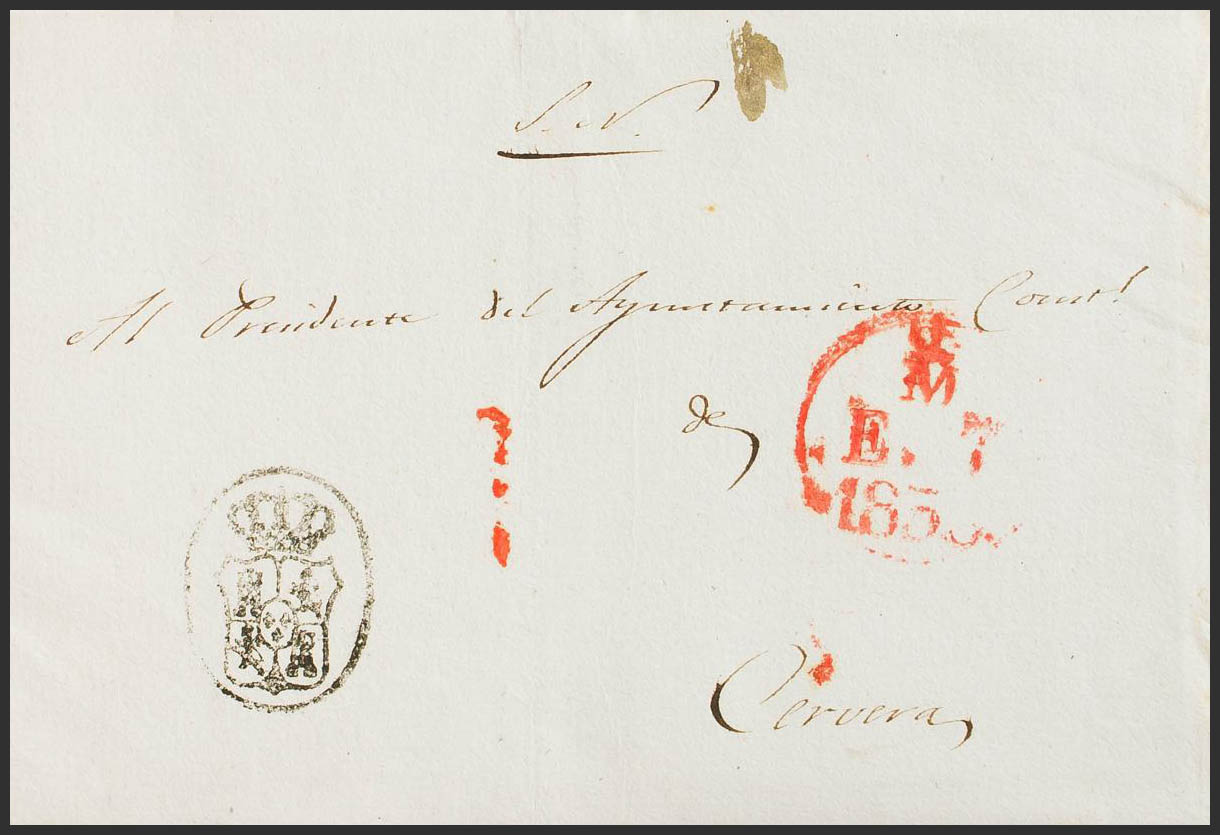 S. N.
Al Presidente del Ayuntamiento Const.l
de
M
E. 7
Cervera